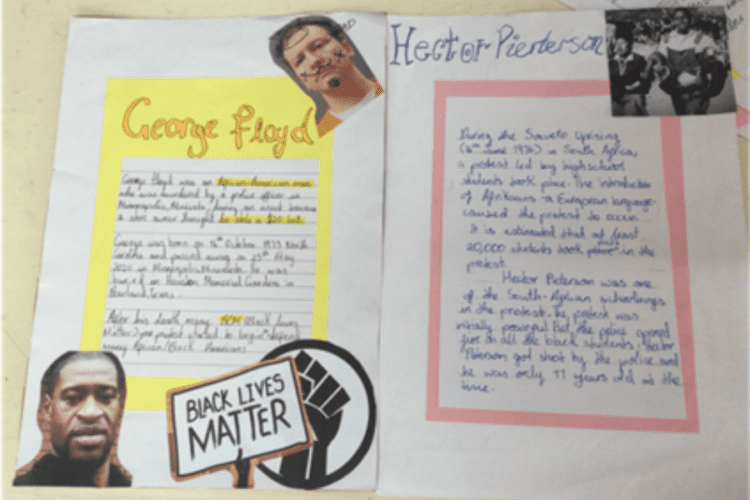 George Floyd
George Floyd was an African-American man
who was murdered by a police officer in
during an arrest because
a store owner thought he stole a $20 bill.
George was born on 14th October 1973 North
Carolina and passed away on 25th May
2020 in He was
buried in Houston Memorial Gardens in
Texas.
After his death many BLM (Black Lives
Matter) started to begin
many African/Black Americans
BLACK LIVES
MATTER
Hector Pieterson
During the Soweto Uprising
(16th June 1976) in South Africa,
a protest led by highschool
students took place. The introduction
of Afrikaans -a European language-
caused the protest to occur.
It is estimated that at least
20,000 students took part in the
protest.
Hector Pieterson was one
of the South-African schoolboys
in the protest. The protest was
initially peaceful. But, the police opened
fire on all the black students. Hector
Pieterson got shot by the police and
he was only 11 years old at the
time.